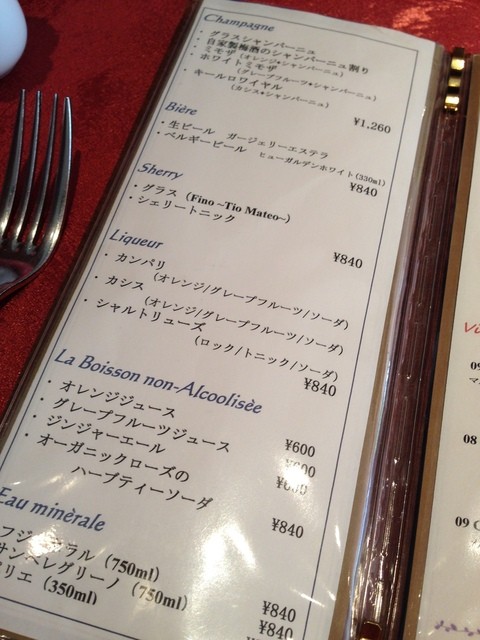 Champagne
・グラスシャンパーニュ
・自家製梅酒のシャンパーニュ割り
・ミモザ (オレンジ♦シャンパーニュ)
・ホワイトミモザ
(グレープフルーツ♦シャンパーニュ)
・キールロワイヤル
(カシス♦シャンパーニュ)
¥1,260
Bière
・生ビール ガージェリーエステラ
・ベルギービール ヒューガルデンホワイト(330ml)
¥840
Sherry
・グラス (Fino ~Tio Mateo~)
・シェリートニック
¥840
Liqueur
・カンパリ
(オレンジ/グレープフルーツ/ソーダ)
・カシス
(オレンジ/グレープフルーツ/ソーダ)
・シャルトリューズ
(ロック/トニック/ソーダ)
¥840
La Boisson non-Alcoolisée
・オレンジジュース ¥600
・グレープフルーツジュース
・ジンジャーエール
・オーガニックローズの
ハーブティーソーダ ¥840
Eau minèrale
フジ ラル (750ml) ¥840
サンペレグリーノ (750ml) ¥840
リエ (350ml)
09
08
09 C